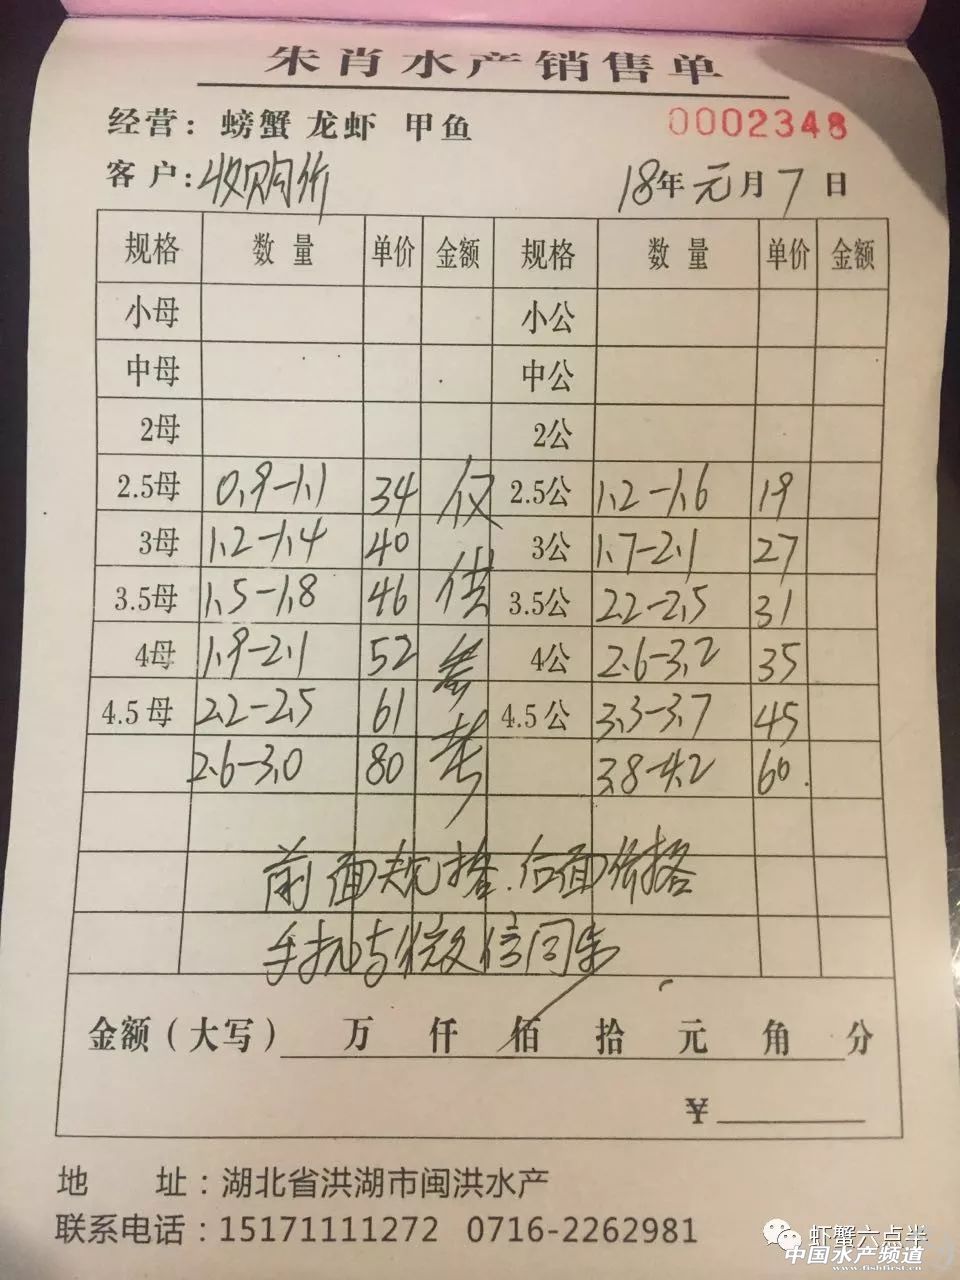 朱肖水产销售单
经营：螃蟹 龙虾 甲鱼 0002348
客户：收购价 18年元月7日
规格 数量 单价 金额 规格 数量 单价 金额
小母 小公
中母 中公
2母 2公
2.5母 0.9-1.1 34 仅 2.5公 1.2-1.6 19
3母 1.2-1.4 40 3公 1.7-2.1 27
3.5母 1.5-1.8 46 供 3.5公 2.2-2.5 31
4母 1.9-2.1 52 参 4公 2.6-3.2 35
4.5母 2.2-2.5 61 考 4.5公 3.3-3.7 45
2.6-3.0 80 3.8-4.2 60.
前面规格.后面价格
手机与微信同步
金额（大写） 万 仟 佰 拾 元 角 分
¥
地 址：湖北省洪湖市闽洪水产
联系电话：15171111272 0716-2262981
虾蟹六点半
中国水产频道
www.fishfirst.cn